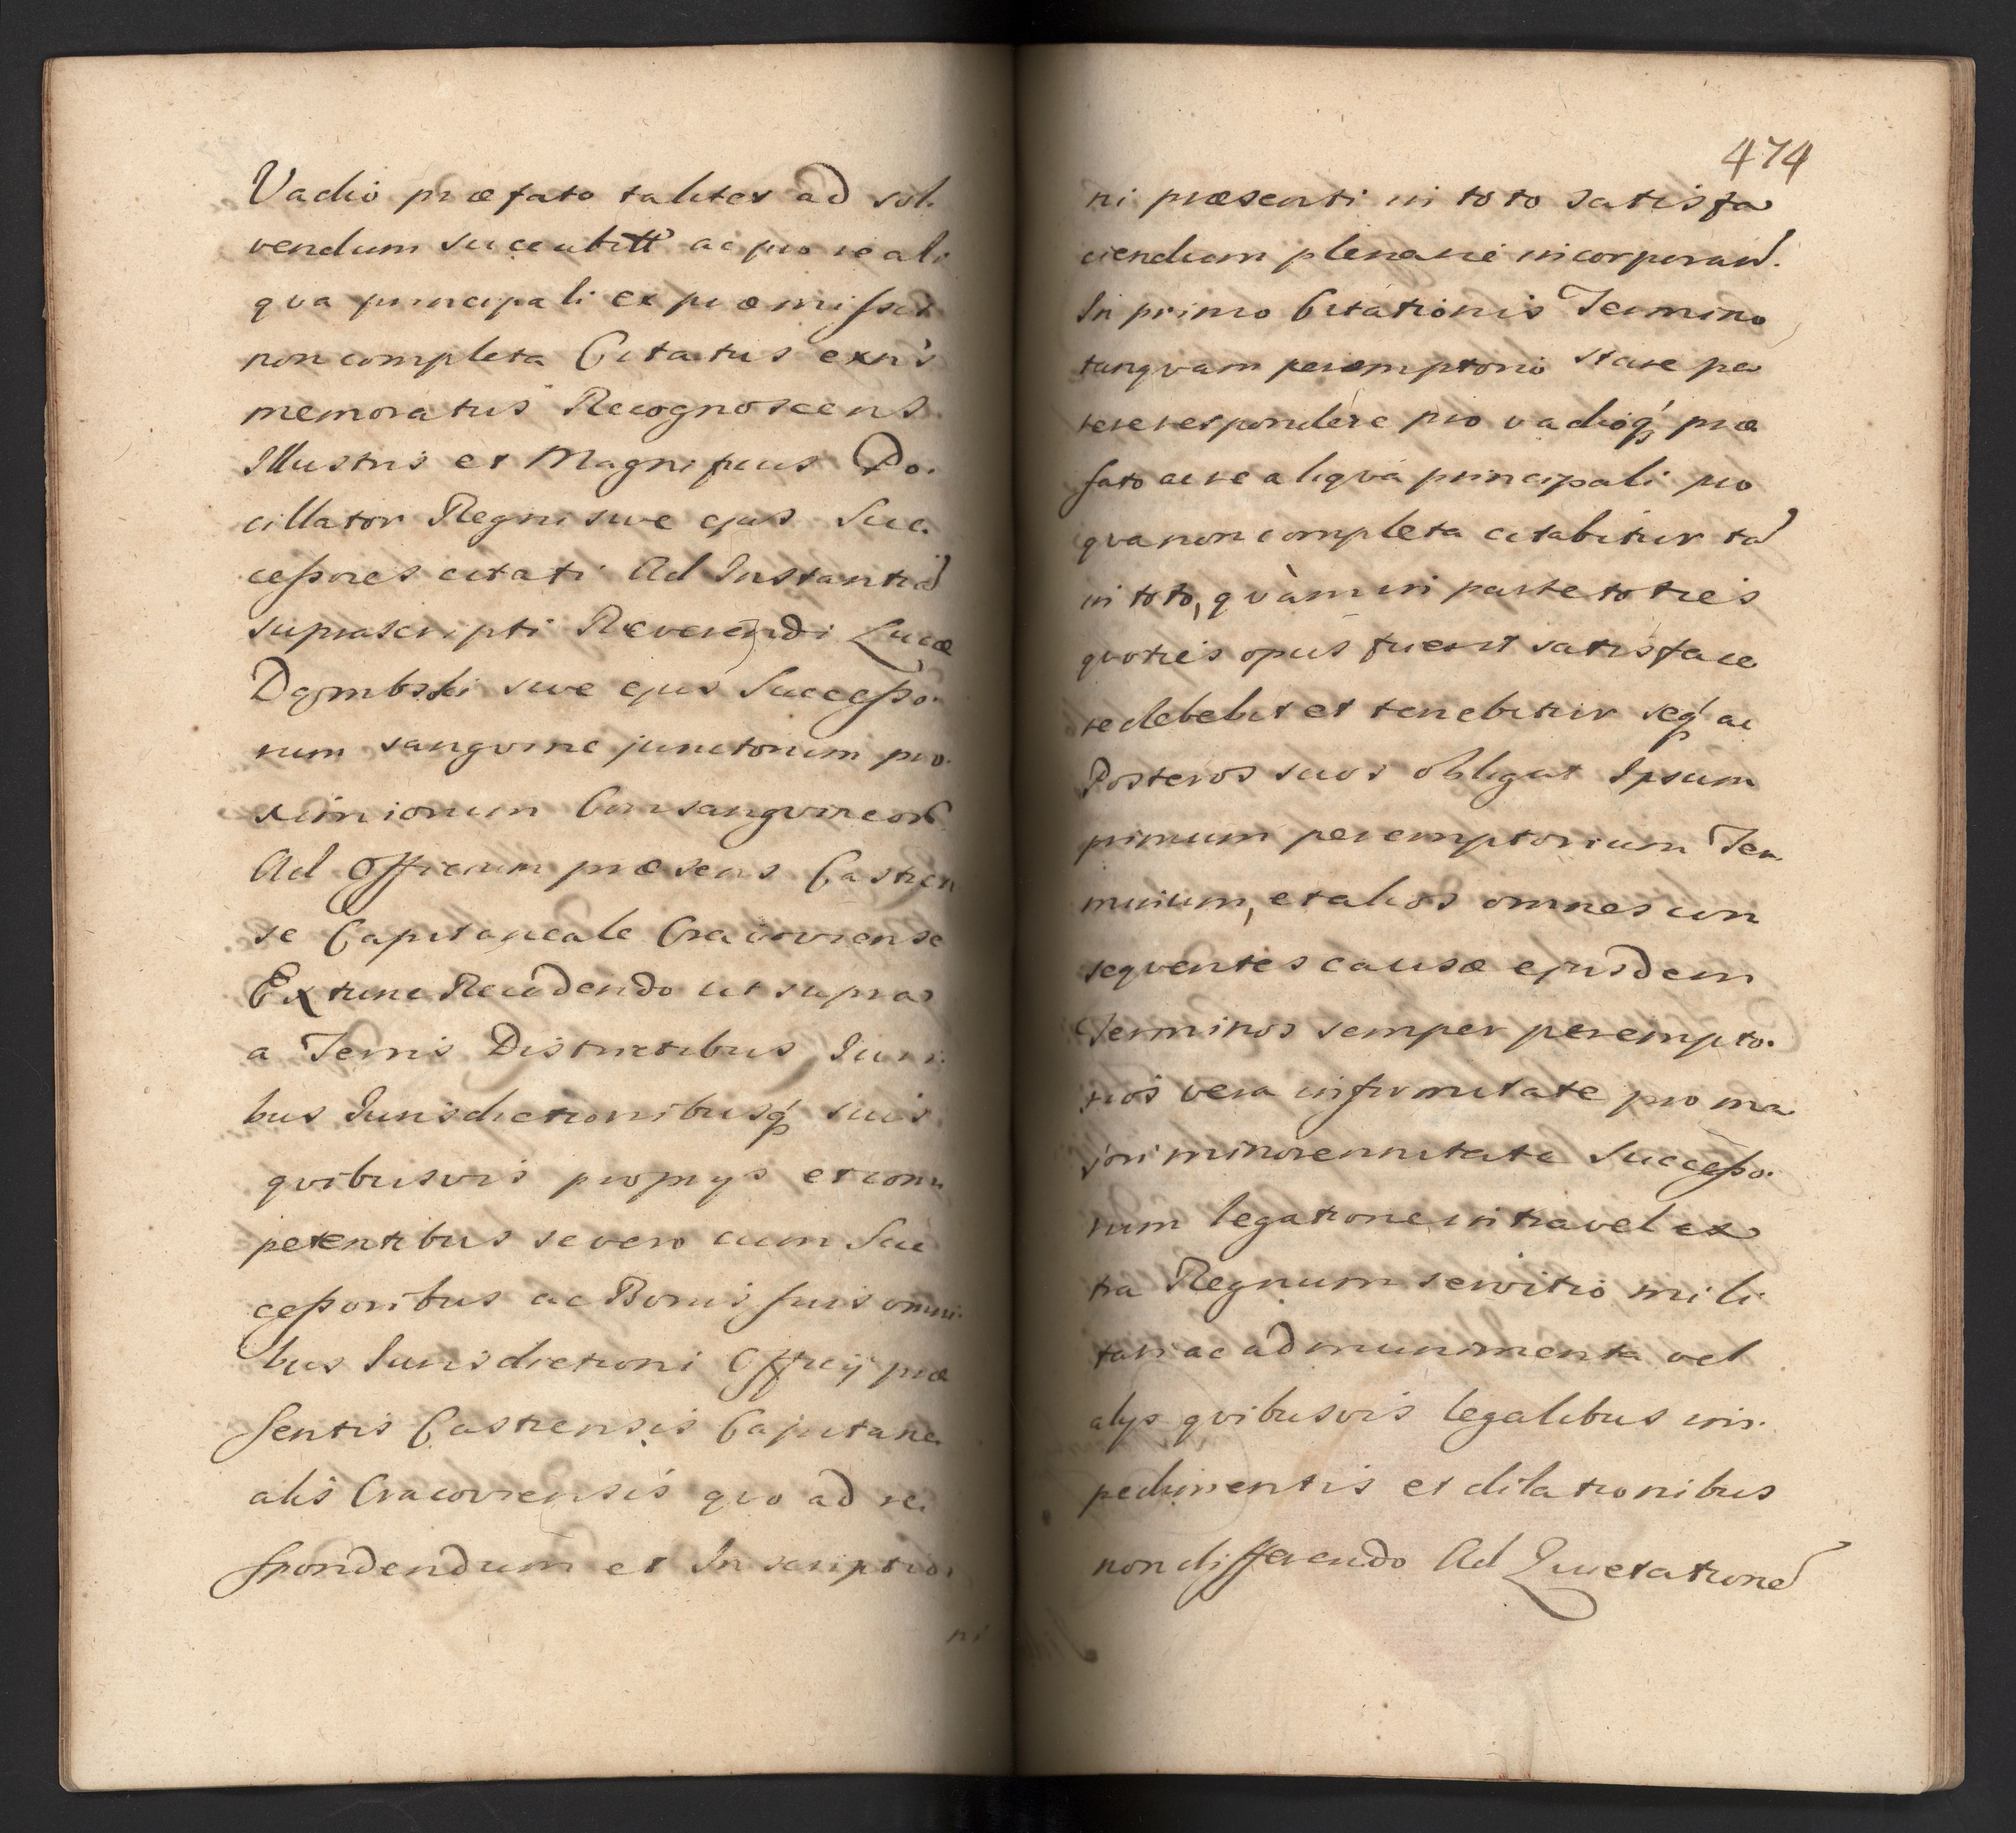 Vadio præfato taliter ad sol.
vendum succubitt ac pro re ali
qva principali ex præmissis
non completa Citatus exn's
memoratus Recognoscens
Illustris et Magnificus Po.
cillator Regni sive ejus Suc.
cessores citati Ad Instantia
suprascripti Reverendi Lucæ
Dąmbski sive ejus Successo.
rum sangvine junctorum pro.
ximiorum Consangvineor
Ad Officium præsens Castren
se Capitaneale Cracoviense
Ex tunc Recedendo ut supra
a Terris Districtibus Juri.
bus Jurisdictionibusq suis
qvibusvis proprys et com
petentibus se vero cum Suc
cessoribus ac Bonis suis omni.
bus Jurisdictioni Officij præ
sentis Castrensis Capitane.
alis Cracoviensis qvo ad re.
spondendum et Inscriptio
ni
474
ni præsenti in toto satisfa
ciendum plenarie incorporand.
In primo Citationis Termino
tanqvam peremptorio stare pa
rere respondere pro vadioq præ
fato ac re aliqva principali pro
qva non completa citabitur ta
in toto, qvàm in parte toties
qvoties opus fuerit satisface
re debebit et tenebitur seq ac
Posteros suos obligat Ipsum
primum peremptorium Ter.
minum, et alios omnes con
seqventes causæ ejusdem
Terminos semper perempto.
rios vera infirmitate pro ma
jori minorennitate Successo.
rum legatione intra vel ex
tra Regnum servitio mili
tari ac ad munimenta vel
alys qvibusvis legalibus im.
pedimentis et dilationibus
non differendo Ad Qvietatione